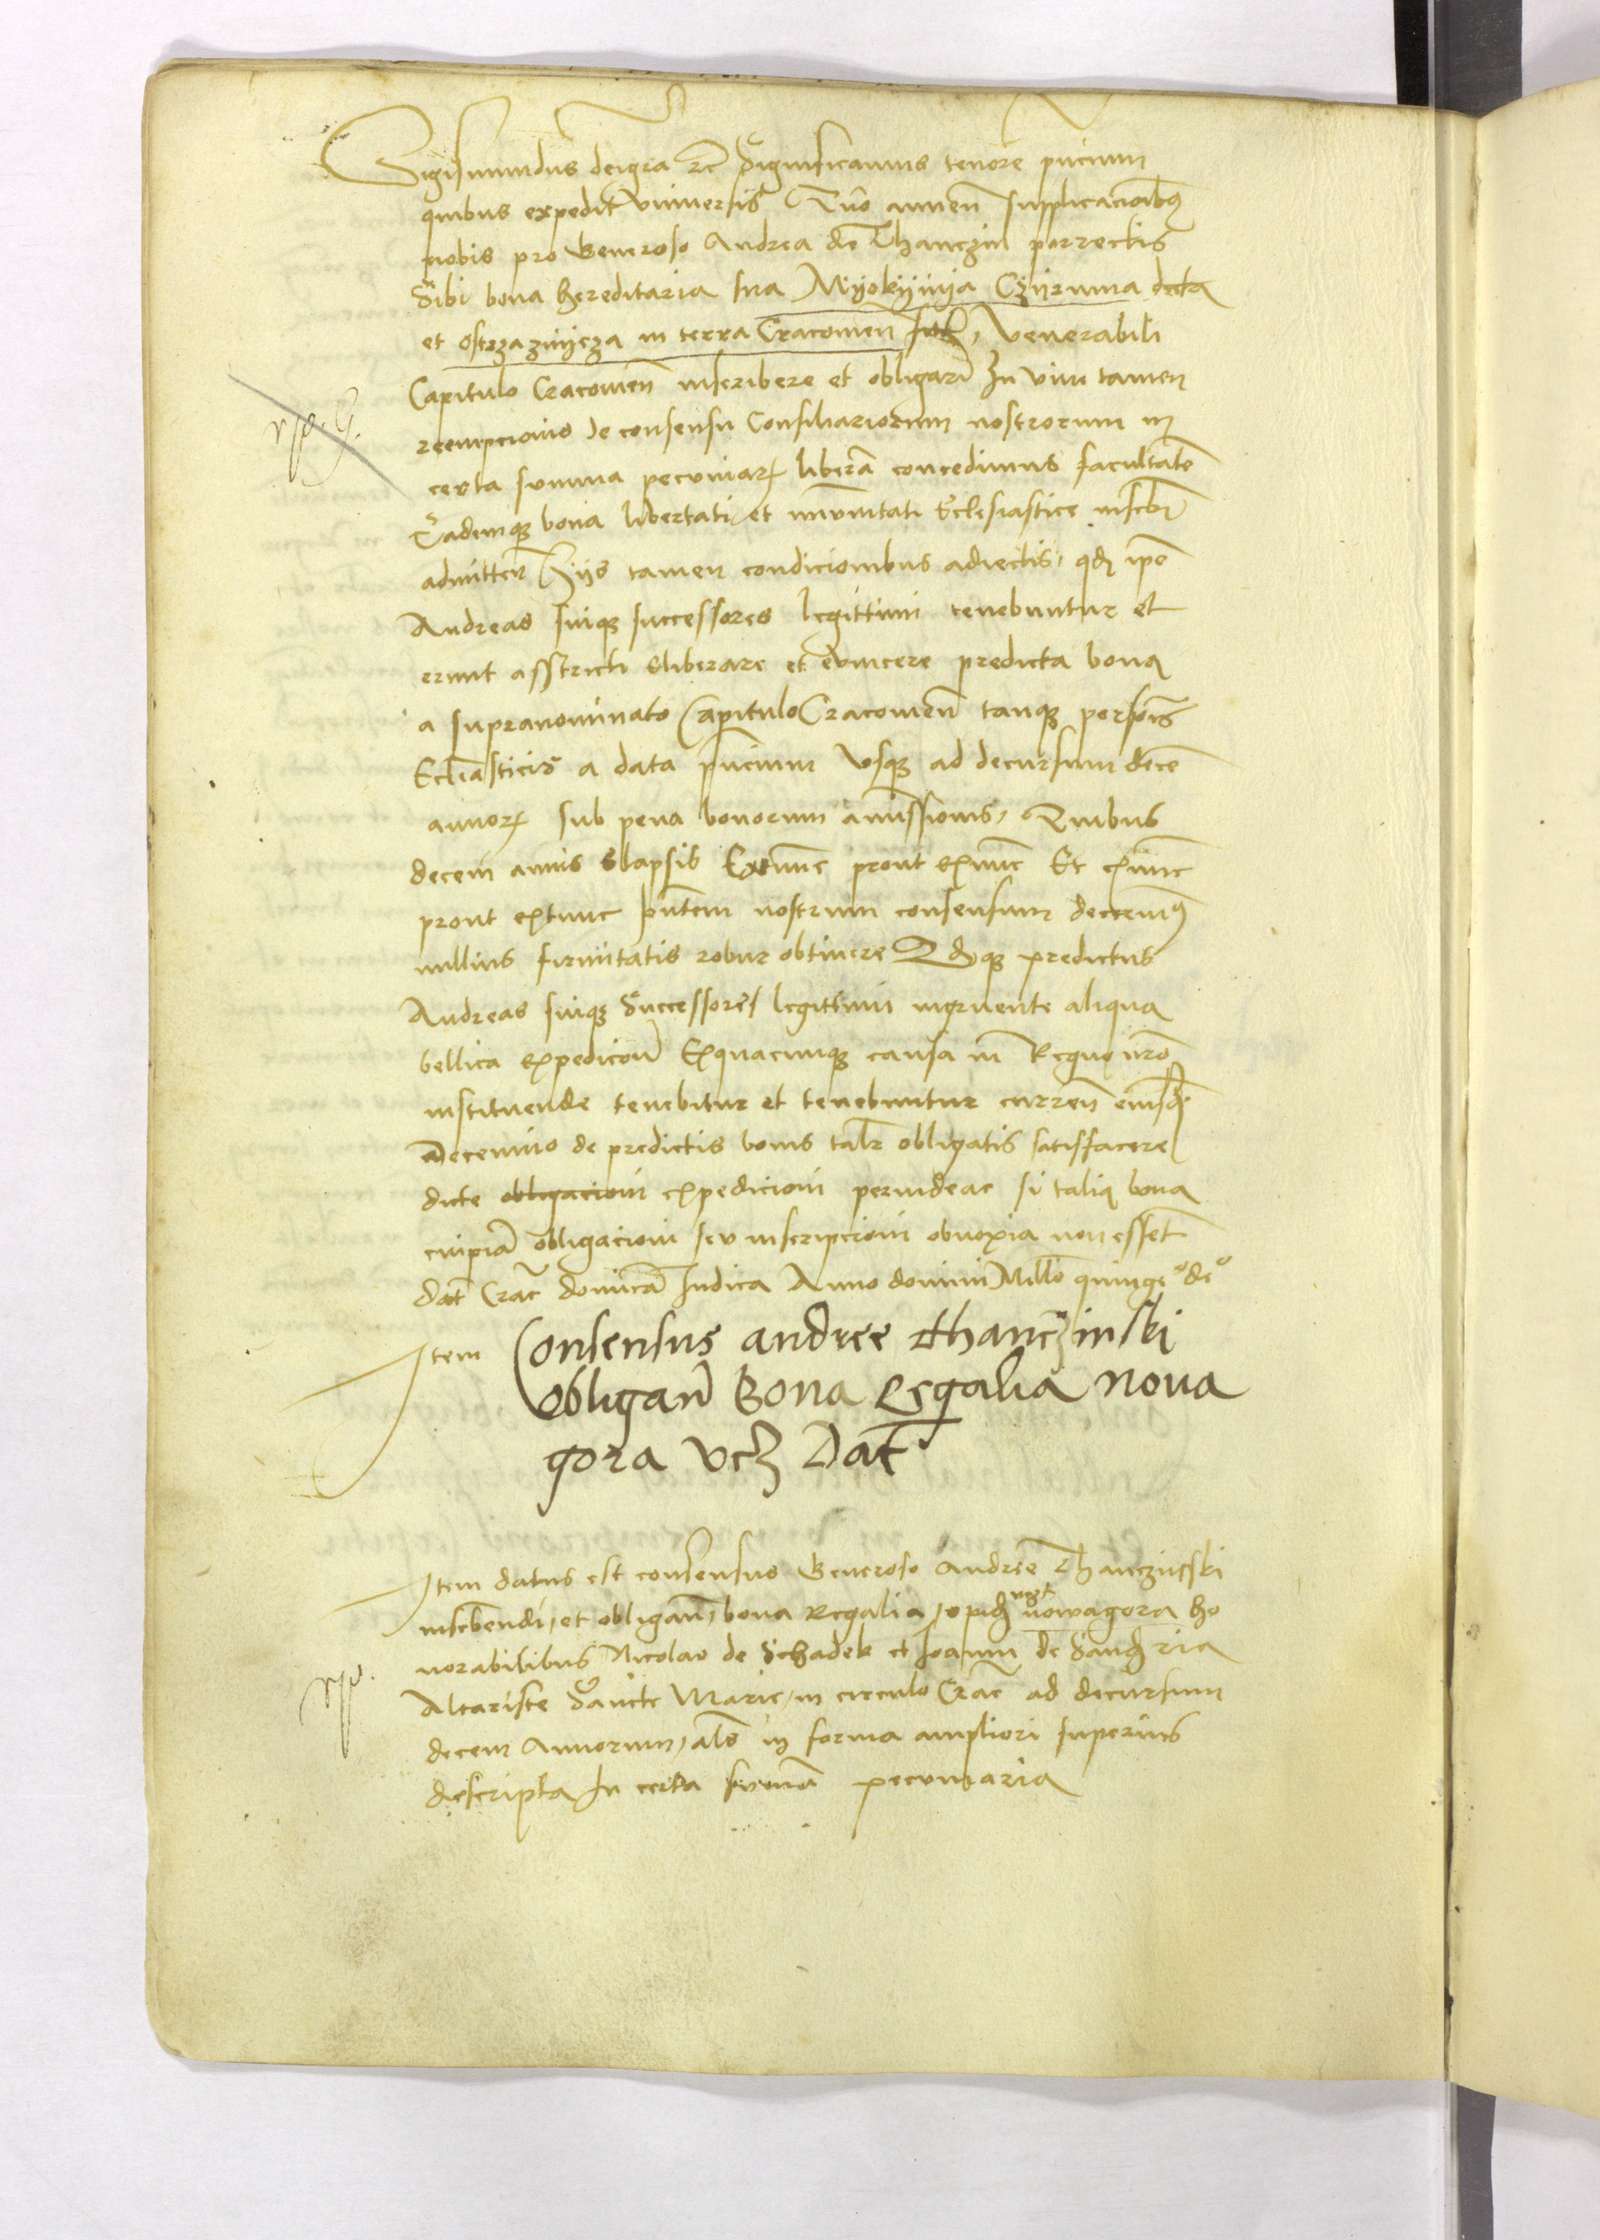 Sigismundus dei gra etc Significamus tenore pncium
quibus expedit vniuersis Quo annuen supplicacionibus
nobis pro Generoso Andrea de Thanczin porrectis
Sibi bona hereditaria sua Myokijnija Czijrnna dicta
et Ostrzaznijcza in terra Cracouien Venerabili
Capitulo Cracouien inscribere et obligari In vim tamen
reempcionis de consensu Consiliariorum nostrorum in
certa summa pecuniar liberam concedimus facultatem
Eademque bona libertati et immunitati Eclesiastice inscbi
admitten Hijs tamen condicionibus adiectis, quod ipse
Andreas suique successores legittimi tenebuntur et
erunt asstricti eliberare et euincere predicta bona
a supranominato Capitulo Cracouien tanquam personis
Ecclasticis a data pncium vsque ad decursum decem
annor sub pena bonorum amissionis, Quibus
decem annis elapsis Extunc prout exnunc Et exnunc
prout extunc pntem nostrum consensum decernimus
nullius firmitatis robur obtinere Quodque predictus
Andreas suique Successores legittimi ingruente aliqua
bellica expedicione Exquacunque causa in Regno nro
instituende tenebitur et tenebuntur curren eiusdem
Decennio de predictis bonis taliter obligatis satisfacere
dicte obligacioni expedicioni perindeac si talia bona
cuipiam obligacioni seu inscripcioni obnoxia non essent
Dat Crac dominica Iudica Anno domini Millo quinge de
Item Consensus andree thanczinski
obligan bona Regalia noua
gora vcz Dat
Item datus est consensus Generoso Andree Thanczinski
inscbendi, et obligan, bona Regalia, opid nowagora ho
norabilibus Nicolao de Schadek et Joanni de
Altariste Sancte Marie, in circulo Crac ad decursum
decem Annorum, als in forma ampliori superius
descripta In certa summa pecuniaria